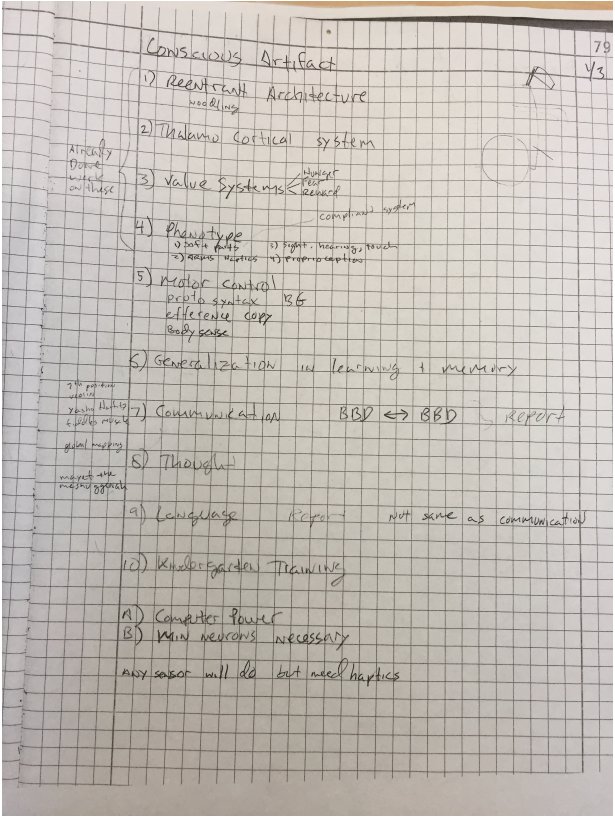 79
1/3
Conscious Artifact
1) Reentrant Architecture
2) Thalamo Cortical system
Already
Done
work
on these
3) Value Systems
Hunger
Fear
Reward
compliant system
4) Phenotype
1) soft parts 3) Sight, hearing, touch
2) Haptics 4) Proprioception
5) Motor Control
proto syntax BG
efference copy
Body sense
6) Generalization in learning + memory
7th position
violin
7) Communication BBD ↔ BBD Report
global mapping
8) Thought
9) Language Report Not same as communication
10) Kindergarten Training
A) Computer Power
B) Min neurons necessary
Any sensor will do but need haptics